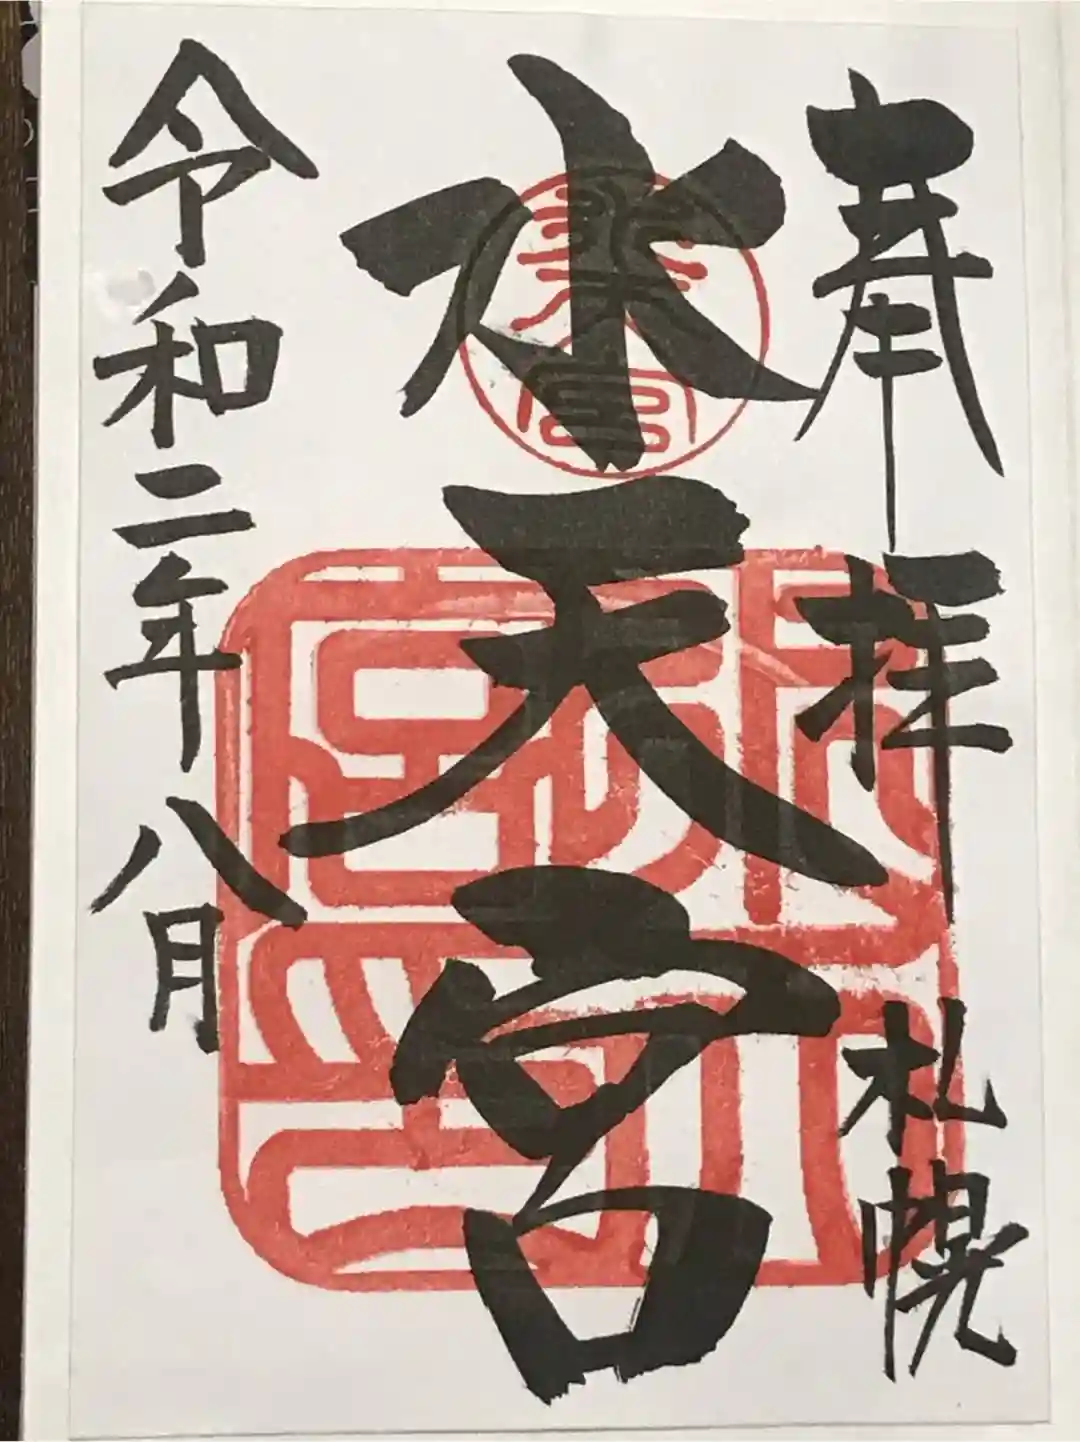 奉拝 札幌
水天宮
令和二年八月